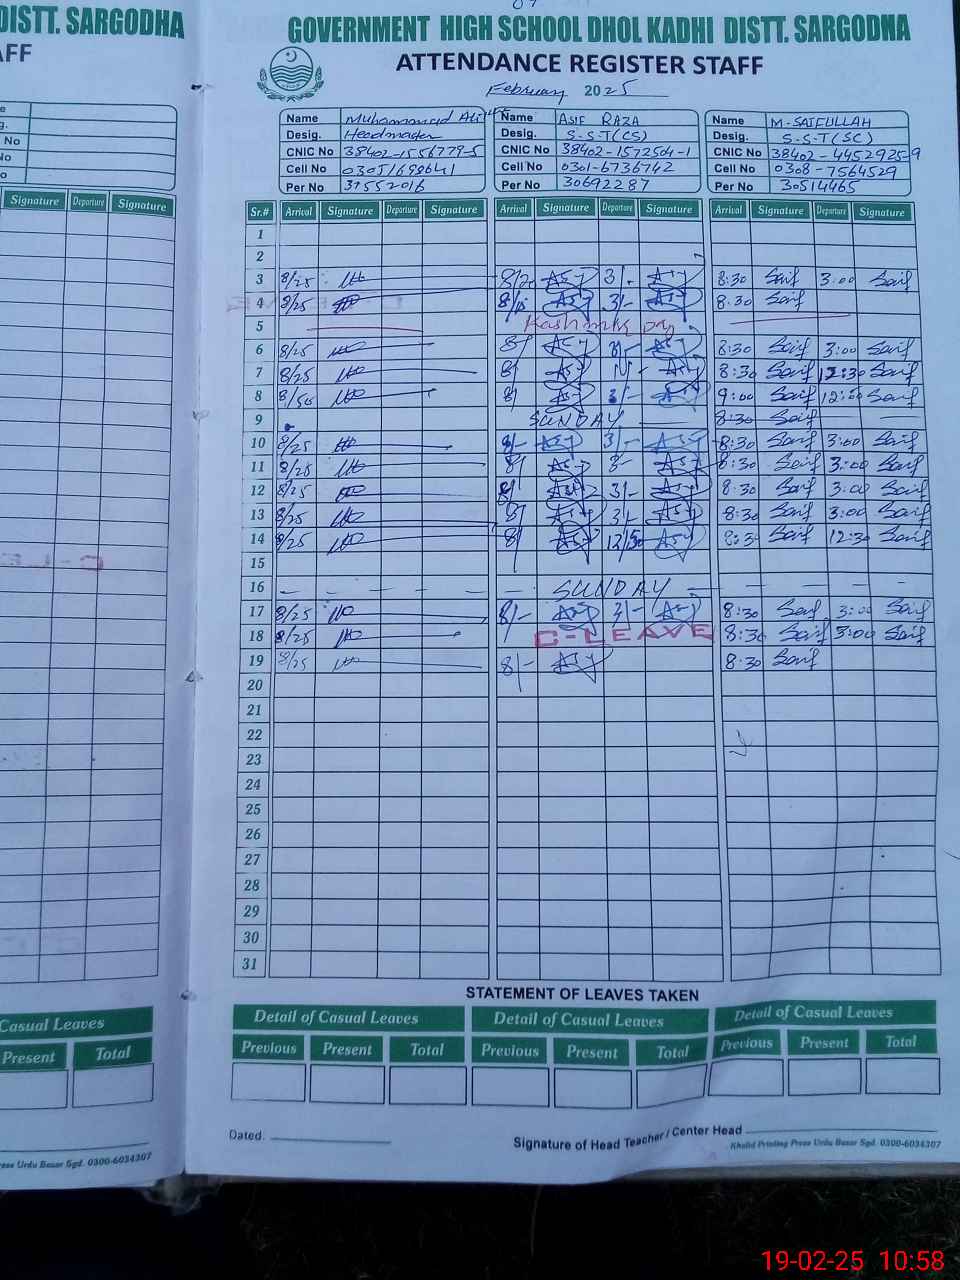 DISTT. SARGODHA
AFF
GOVERNMENT HIGH SCHOOL DHOL KADHI DISTT. SARGODHA
ATTENDANCE REGISTER STAFF
February 2025
Name Muhammad Ali Name ASIF RAZA Name M-SAIFULLAH
Desig. Headmaster Desig. S-S-T(CS) Desig. S-S-T(SC)
CNIC No 38402-1556779-5 CNIC No 38402-1572504-1 CNIC No 38402-4452925-9
Cell No Cell No 0301-6736742 Cell No 0308-7564529
Per No 31552016 Per No 30692287 Per No 30514465
Signature Departure Signature
Sr.# Arrival Signature Departure Signature Arrival Signature Departure Signature Arrival Signature Departure Signature
1
2
3 8/25 3/- 8:30 Saif 3:00 Saif
4 8/25 3/- 8:30 Saif
5 Kashmir Day
6 8/25 8/ 8:30 Saif 3:00 Saif
7 8/25 8/ 8:30 Saif 12:30 Saif
8 8/50 8/ 9:00 Saif Saif
9 SUNDAY 8:30 Saif
10 8/25 8/- 3/- 8:30 Saif 3:00 Saif
11 8/25 8/ 3- 8:30 Saif 3:00 Saif
12 8/25 8/ 3/- 8:30 Saif 3:00 Saif
13 8/25 8/ 3/- 8:30 Saif 3:00 Saif
14 8/25 8/ Saif 12:30 Saif
15
16 SUNDAY
17 8/25 8/- 3/- 8:30 Saif 3:00 Saif
18 8/25 C-LEAVE 8:30 Saif 3:00 Saif
19 8/25 8/- 8:30 Saif
20
21
22
23
24
25
26
27
28
29
30
31
STATEMENT OF LEAVES TAKEN
Casual Leaves Detail of Casual Leaves Detail of Casual Leaves Detail of Casual Leaves
Present Total Previous Present Total Previous Present Total Previous Present Total
Dated: Signature of Head Teacher / Center Head
Press Urdu Bazar Sgd. 0300-6034307 Khalid Printing Press Urdu Bazar Sgd. 0300-6034307
19-02-25 10:58